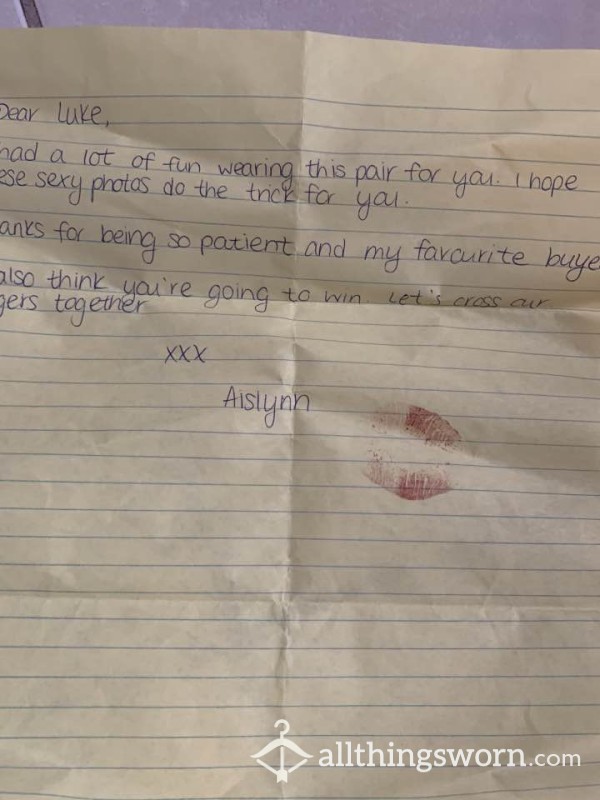 Dear Luke,
had a lot of fun wearing this pair for you. I hope
ese sexy photos do the trick for you.
anks for being so patient and my favourite buye
also think you're going to win. Let's cross our
gers together
xxx
Aislynn
allthingsworn.com